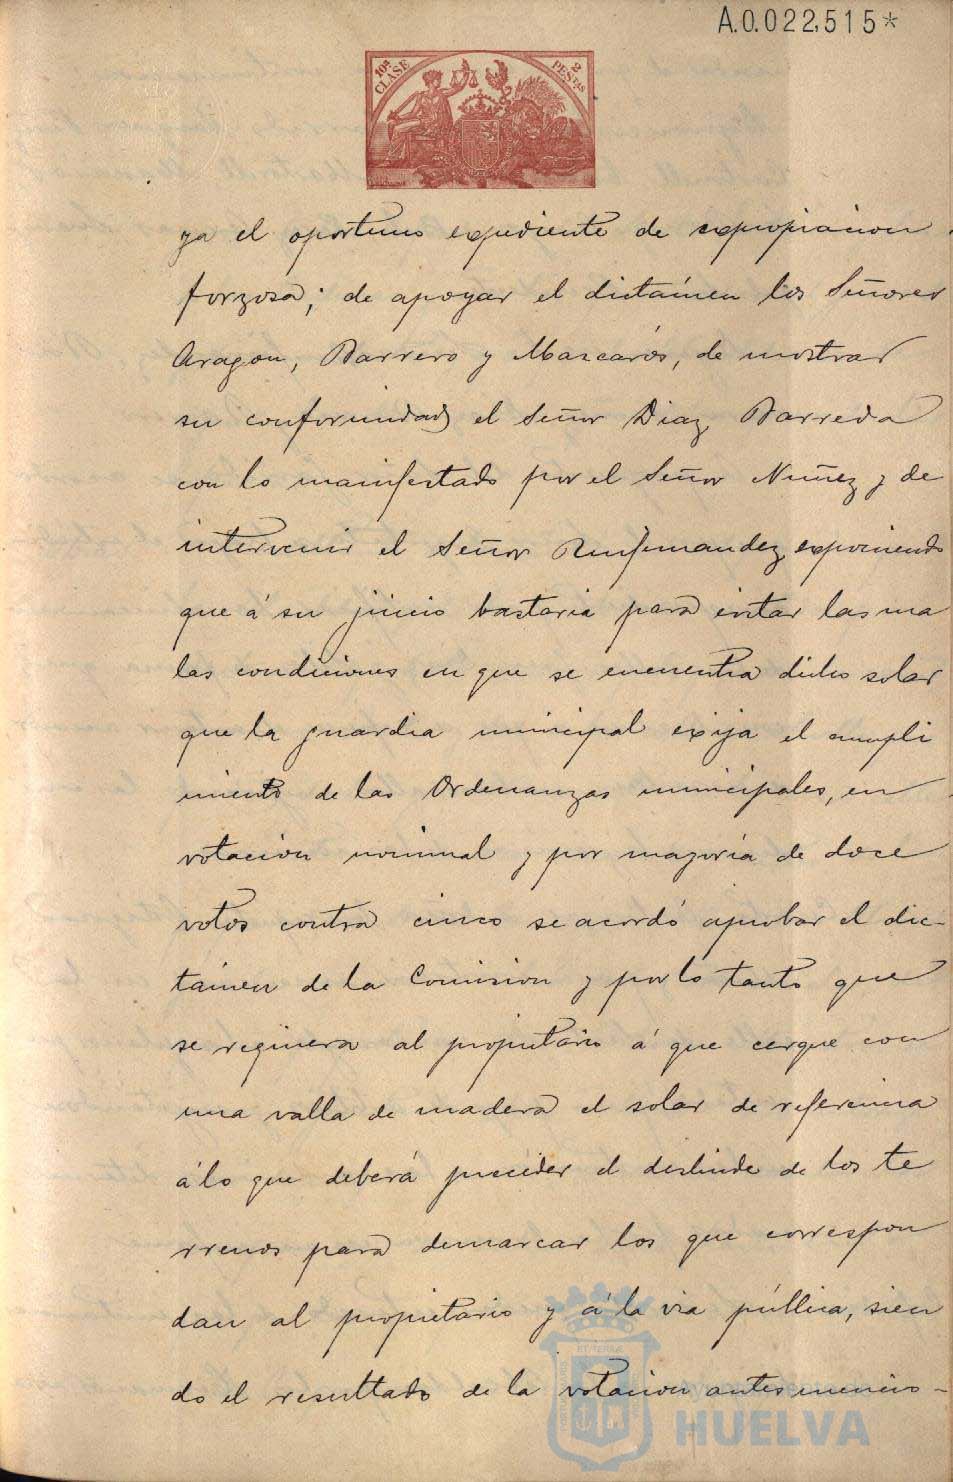 A.0.022,515*
10ª CLASE 2 PESTAS
ya el oportuno expediente de expropiacion
forzosa; de apoyar el dictámen los Señores
Aragon, Barrero y Mascarós, de mostrar
su conformidad el Señor Diaz Barreda
con lo manifestado por el Señor Nuñez y de
intervenir el Señor exponiendo
que á su juicio bastaria para evitar las ma
las condiciones en que se encuentra dicho solar
que la guardia municipal exija el cumpli
miento de las Ordenanzas municipales, en
votacion nominal y por mayoria de doce
votos contra cinco se acordó aprobar el dic-
támen de la Comision y por lo tanto que
se requiera al propietario á que cerque con
una valla de madera el solar de referencia
á lo que deberá preceder el deslinde de los te
rrenos para demarcar los que correspon
dan al propietario y á la via pública, sien
do el resultado de la votacion antes mencio-
HUELVA